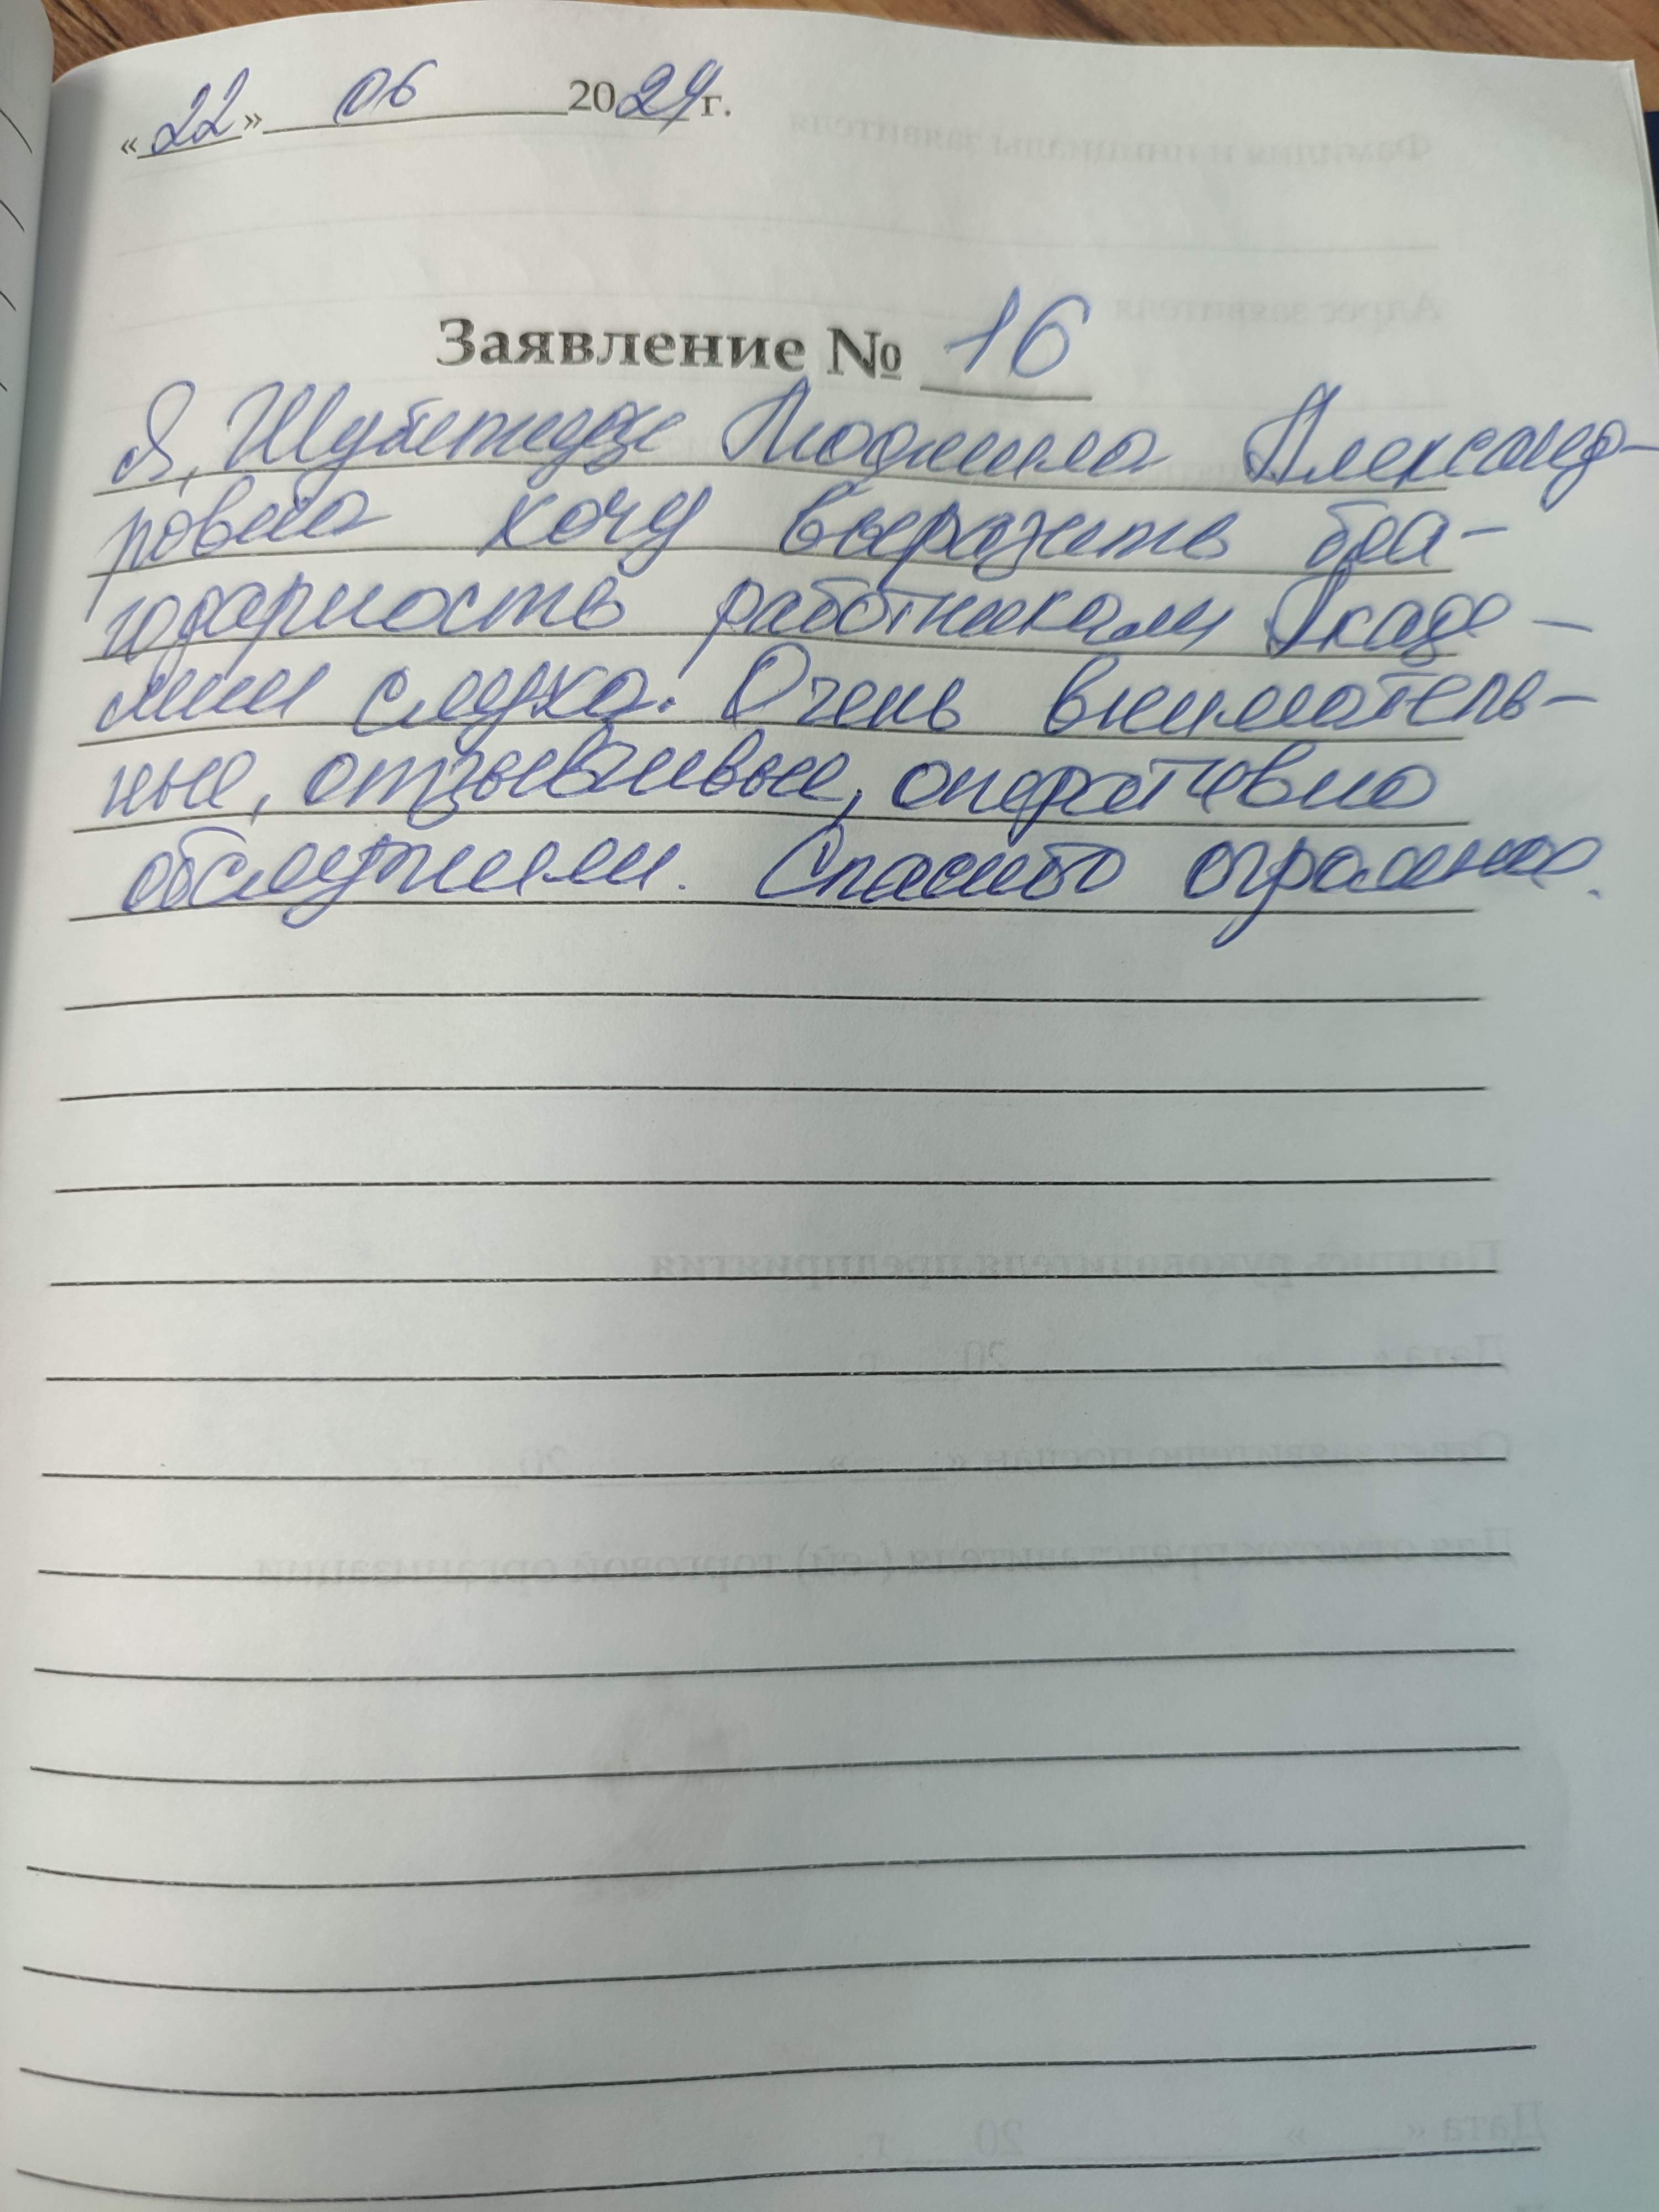 «22» 06 2024 г.
Заявление № 16
Я, Людмила Александ-
ровна хочу выразить бла-
годарность работникам Акаде-
мии слуха. Очень вниматель-
ные, отзывчивые, оперативно
обслужили. Спасибо огромное.